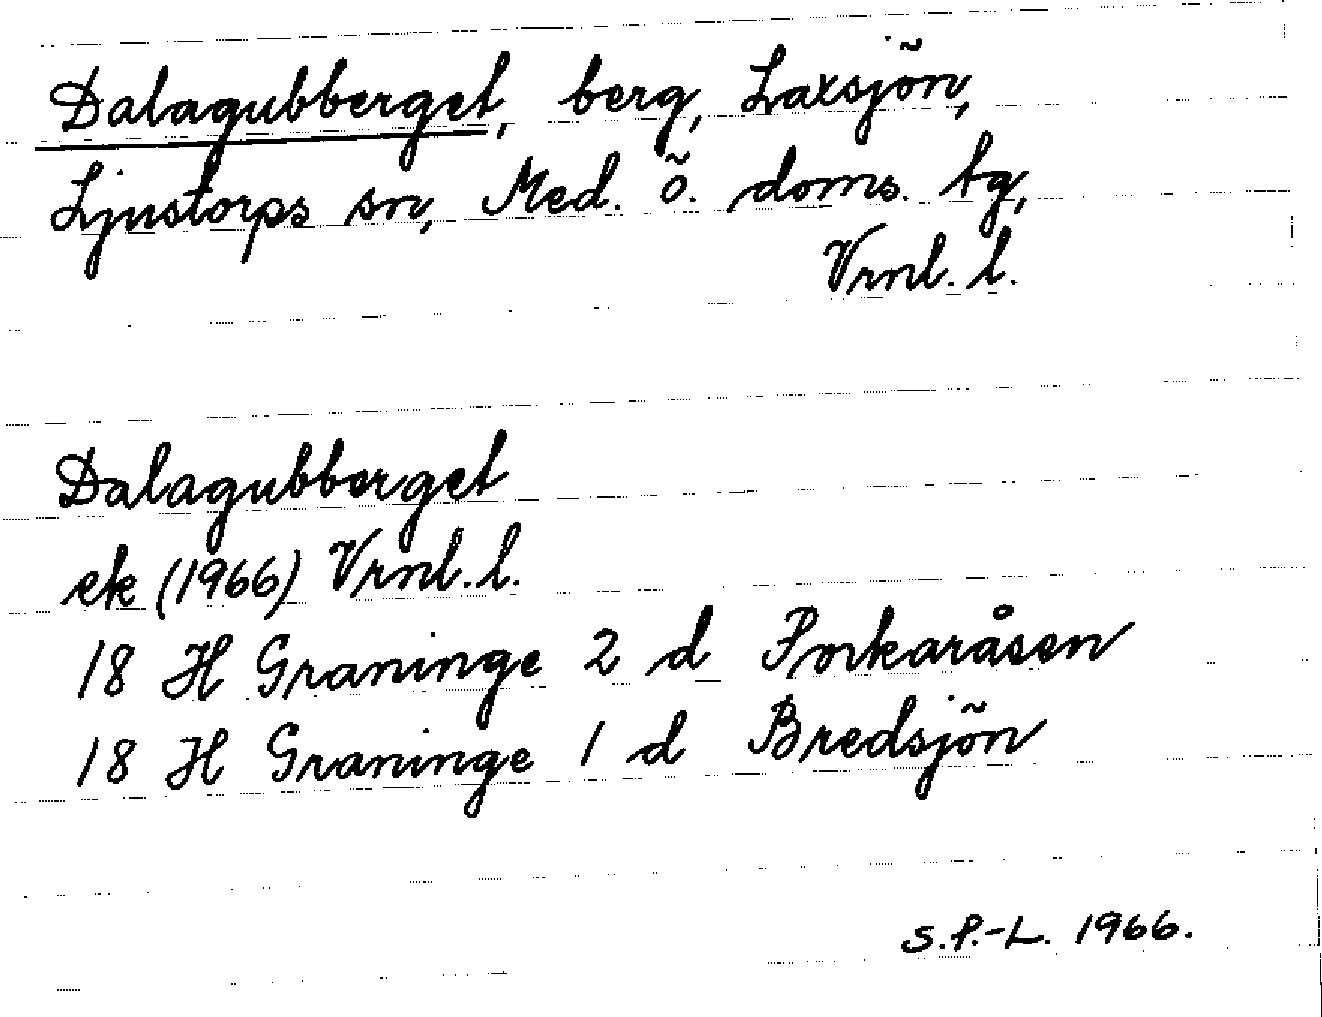 Dalagubberget, berg, Laxsjön,
Ljustorps sn, Med. ö. doms. tg,
Vrnl. l.
Dalagubberget
ek (1966) Vrnl. l.
18 H Graninge 2 d Porkaråsen
18 H Graninge 1 d Bredsjön
S.P.-L. 1966.